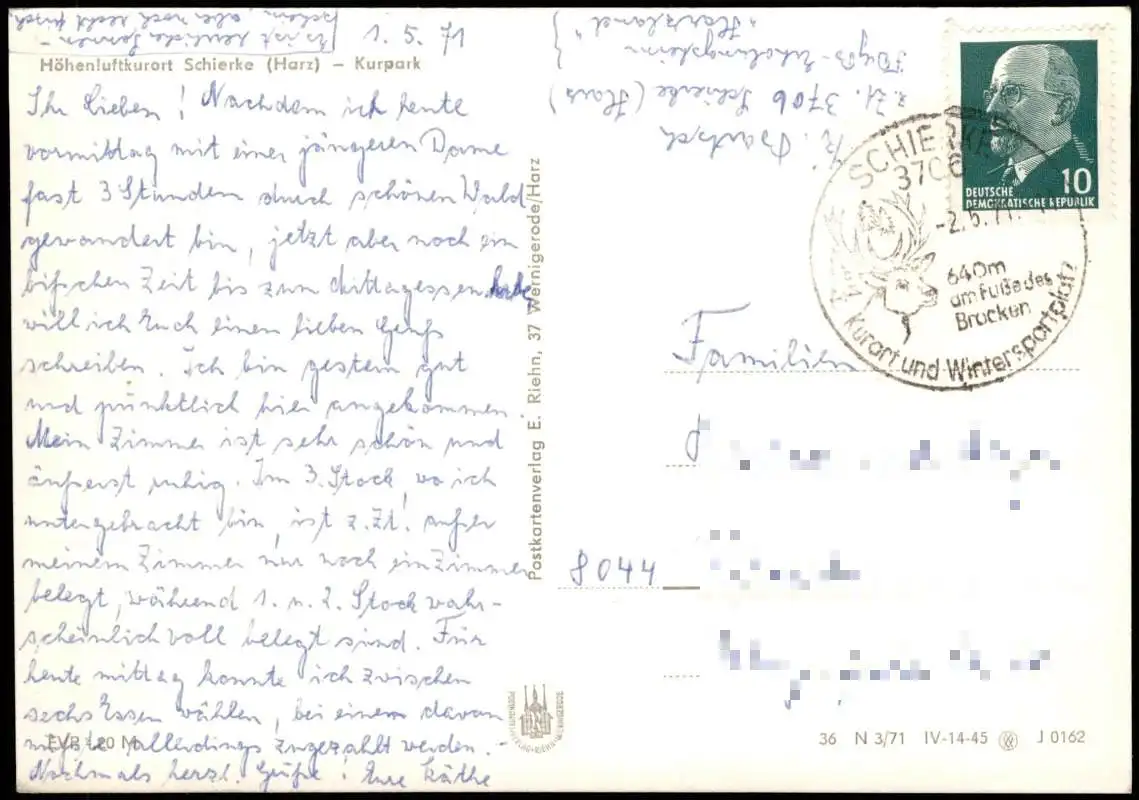 1. 5. 71
Höhenluftkurort Schierke (Harz) – Kurpark
Ihr Lieben! Nachdem ich heute
vormittag mit einer jüngeren Dame
fast 3 Stunden durch schönen Wald
gewandert bin, jetzt aber noch ein
bißchen Zeit bis zum Mittagessen habe
will ich Euch einen lieben Gruß
schreiben. Ich bin gestern gut
und pünktlich hier angekommen.
Mein Zimmer ist sehr schön und
äußerst ruhig. Im 3. Stock, wo ich
untergebracht bin, ist z.Zt. außer
meinem Zimmer nur noch ein Zimmer
belegt, während 1. u. 2. Stock wahr-
scheinlich voll belegt sind. Für
heute mittag konnte ich zwischen
sechs Essen wählen, bei einem davon
mußte allerdings zugezahlt werden. -
EVP -,20 M
Nochmals herzl. Grüße! Eure Käthe
Es ist herrliches Sonnen-
schein, aber noch recht frisch
Postkartenverlag E. Riehn, 37 Wernigerode/Harz
K.
z.Zt. 3706 Schierke (Harz)
FDGB-Erholungsheim
"Harzland"
DEUTSCHE
DEMOKRATISCHE REPUBLIK
10
SCHIERKE
3706
-2.5.71
640m
am Fuße des
Brocken
Kurort und Wintersportplatz
Familien
8044
36 N 3/71 IV-14-45 J 0162